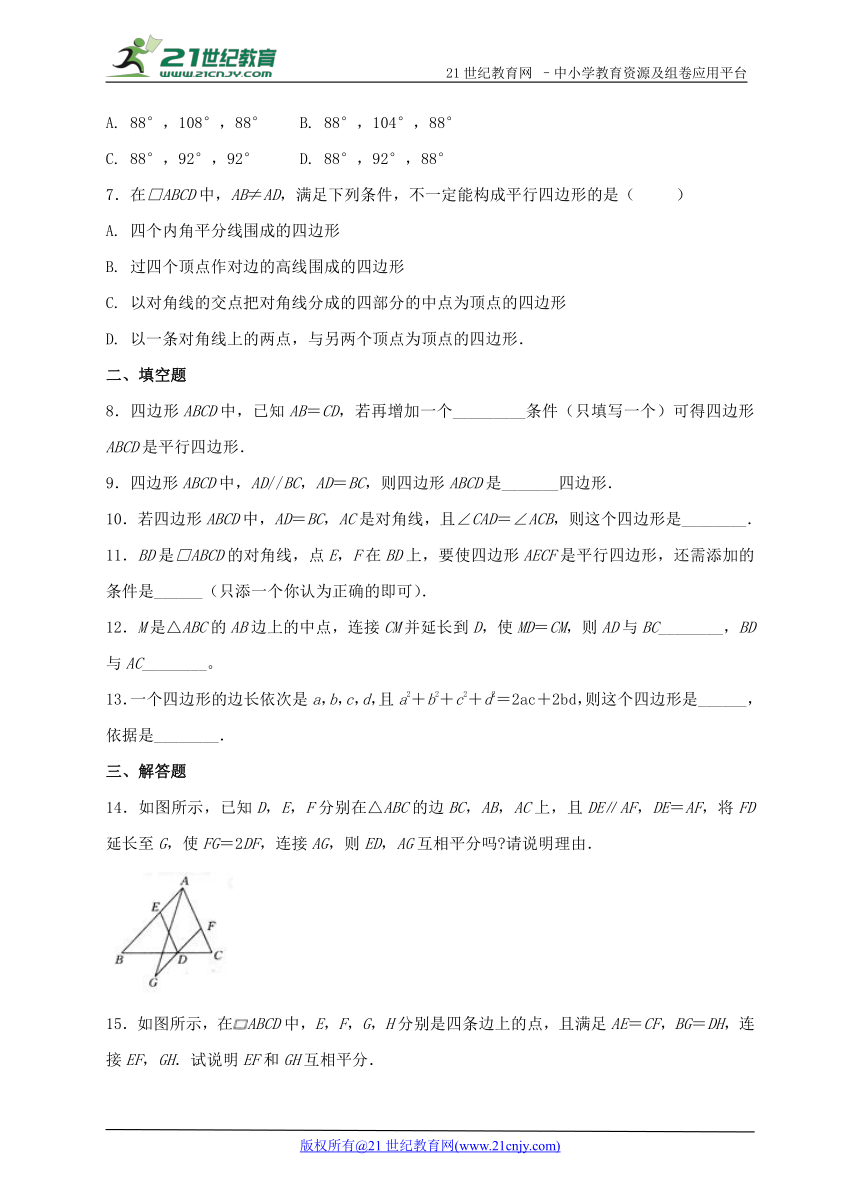 21世纪教育
WWW.21CNJY.COM
21世纪教育网 -中小学教育资源及组卷应用平台
A. 88°,108°,88° B. 88°,104°,88°
C. 88°,92°,92° D. 88°,92°,88°
7.在□ABCD中,AB≠AD,满足下列条件,不一定能构成平行四边形的是( )
A. 四个内角平分线围成的四边形
B. 过四个顶点作对边的高线围成的四边形
C. 以对角线的交点把对角线分成的四部分的中点为顶点的四边形
D. 以一条对角线上的两点,与另两个顶点为顶点的四边形.
二、填空题
8.四边形ABCD中,已知AB=CD,若再增加一个_________条件(只填写一个)可得四边形
ABCD是平行四边形.
9.四边形ABCD中,AD//BC,AD=BC,则四边形ABCD是_______四边形.
10.若四边形ABCD中,AD=BC,AC是对角线,且∠CAD=∠ACB,则这个四边形是________.
11.BD是□ABCD的对角线,点E,F在BD上,要使四边形AECF是平行四边形,还需添加的
条件是______(只添一个你认为正确的即可).
12.M是△ABC的AB边上的中点,连接CM并延长到D,使MD=CM,则AD与BC________,BD
与AC________。
13.一个四边形的边长依次是a,b,c,d,且a²+b²+c²+d²=2ac+2bd,则这个四边形是______,
依据是________.
三、解答题
14.如图所示,已知D,E,F分别在△ABC的边BC,AB,AC上,且DE∥AF,DE=AF,将FD
延长至G,使FG=2DF,连接AG,则ED,AG互相平分吗?请说明理由.
A
E
F
B
D
C
G
15.如图所示,在▱ABCD中,E,F,G,H分别是四条边上的点,且满足AE=CF,BG=DH,连
接EF,GH.试说明EF和GH互相平分.
版权所有@21世纪教育网(www.21cnjy.com)